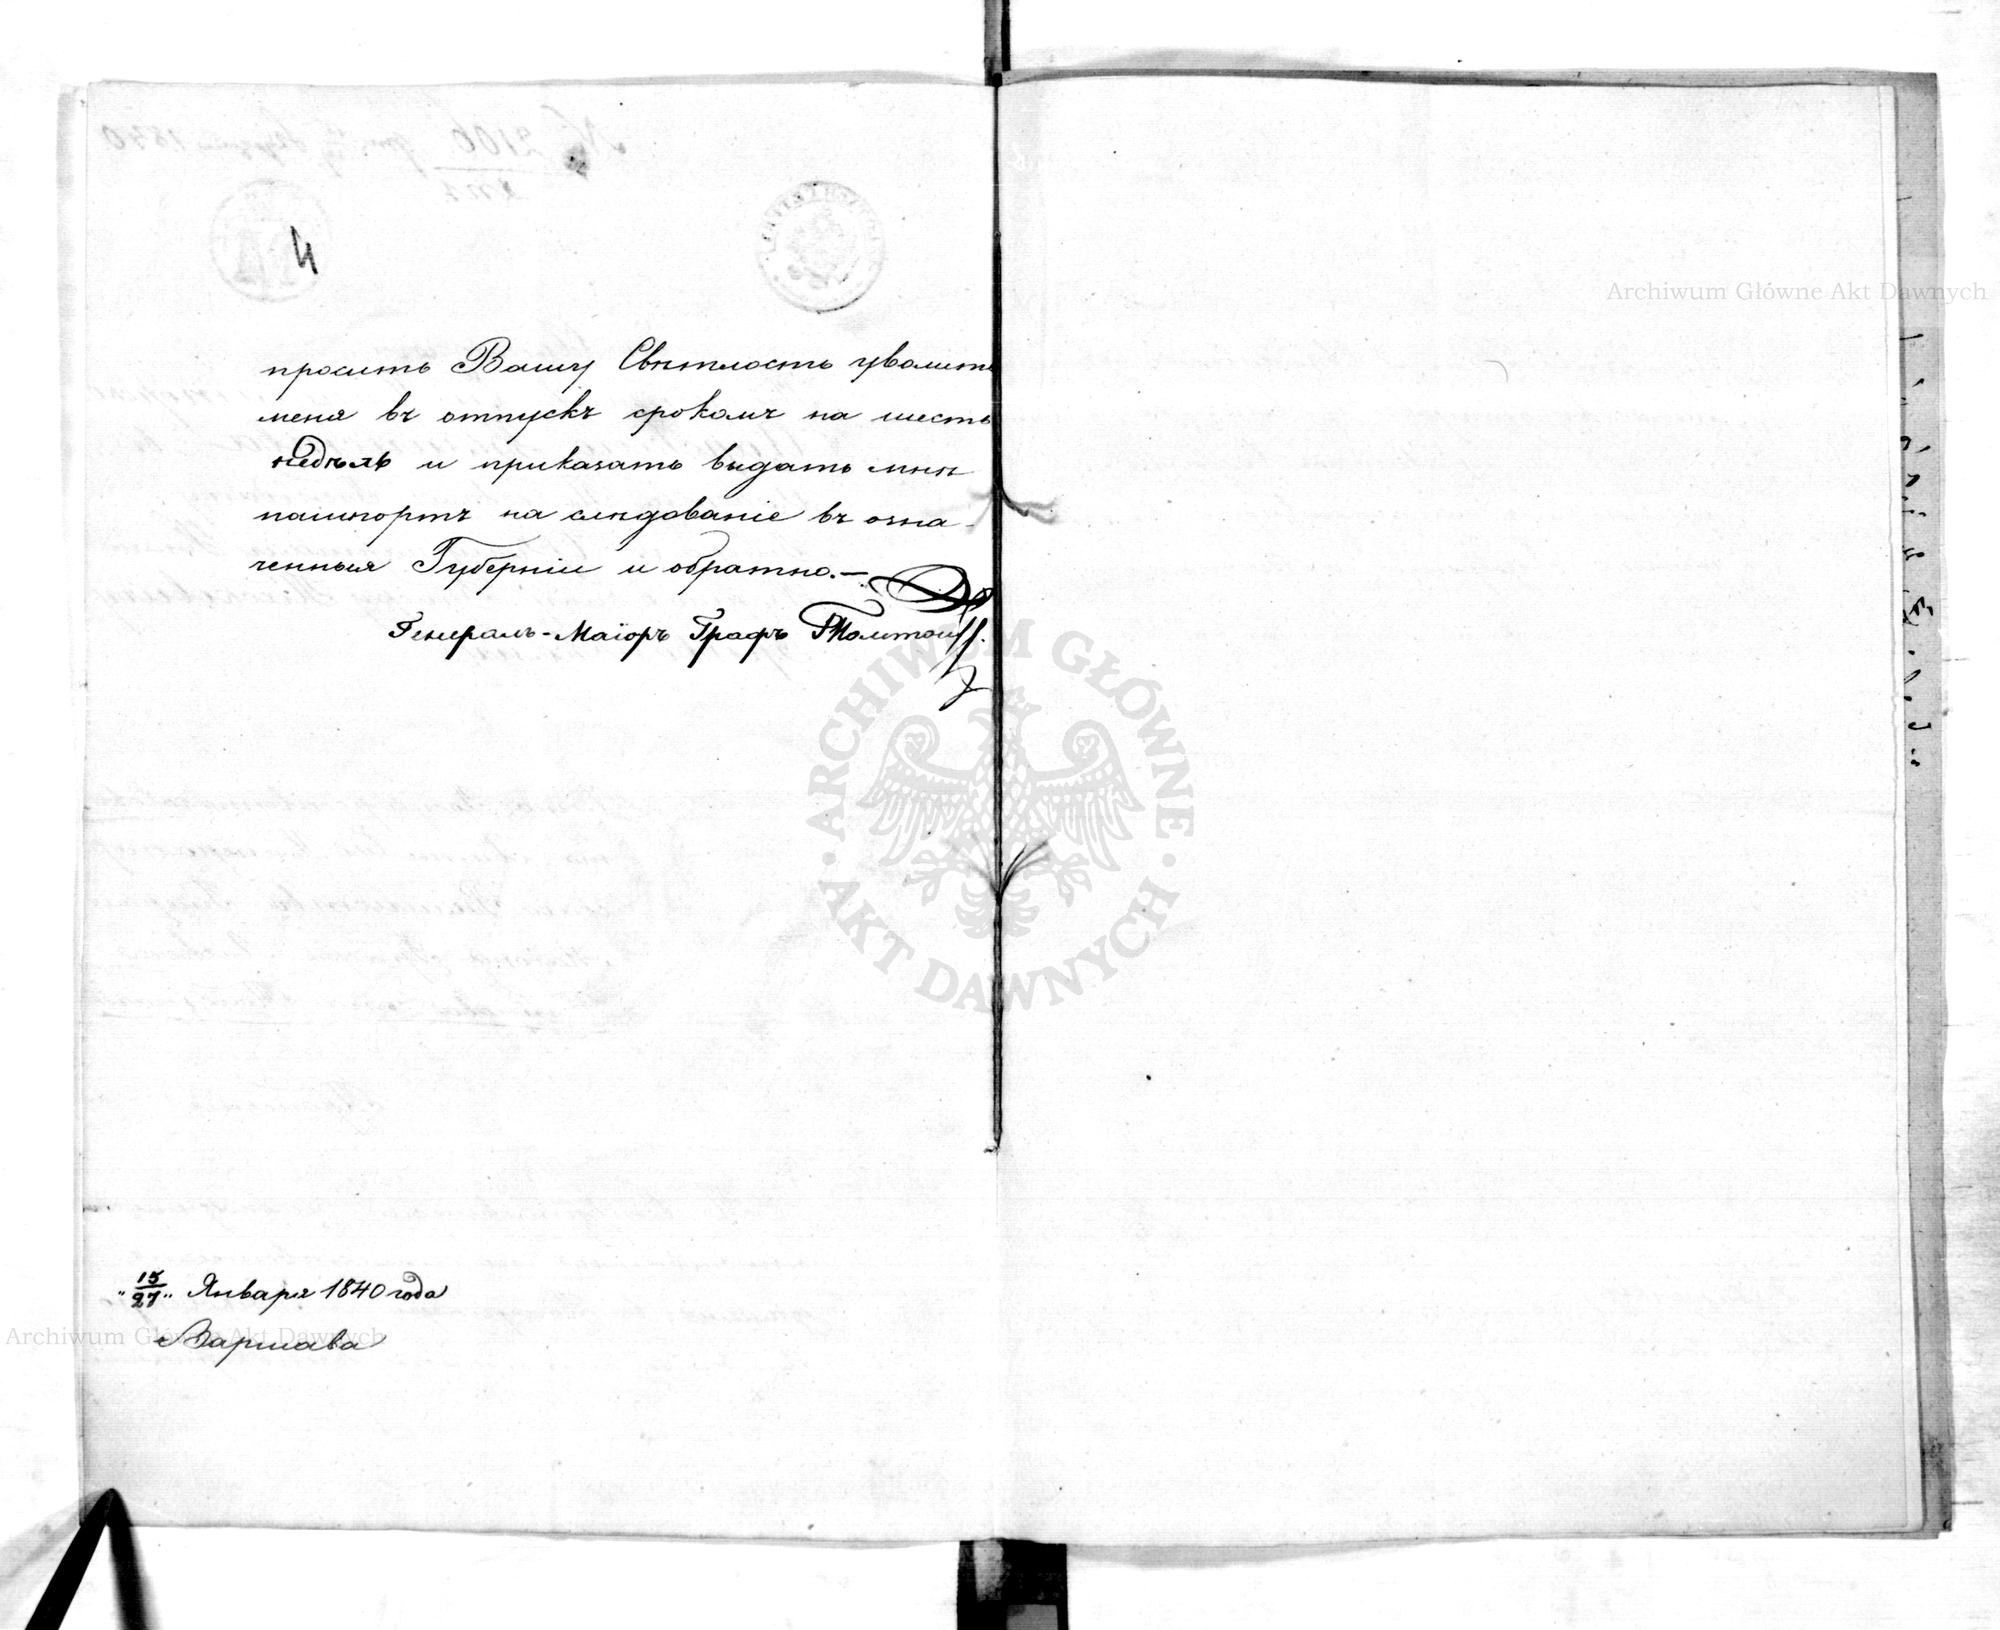 4
проситъ Вашу Свѣтлость уволить
меня въ отпускъ срокомъ на шесть
недѣль и приказать выдать мнѣ
пашпортъ на слѣдованіе въ озна-
ченныя Губерніи и обратно.—
Генералъ-Маіоръ Графъ Толстой
"15/27" Января 1840 года
Варшава
Archiwum Główne Akt Dawnych
Archiwum Główne Akt Dawnych
ARCHIWUM GŁÓWNE · AKT DAWNYCH ·